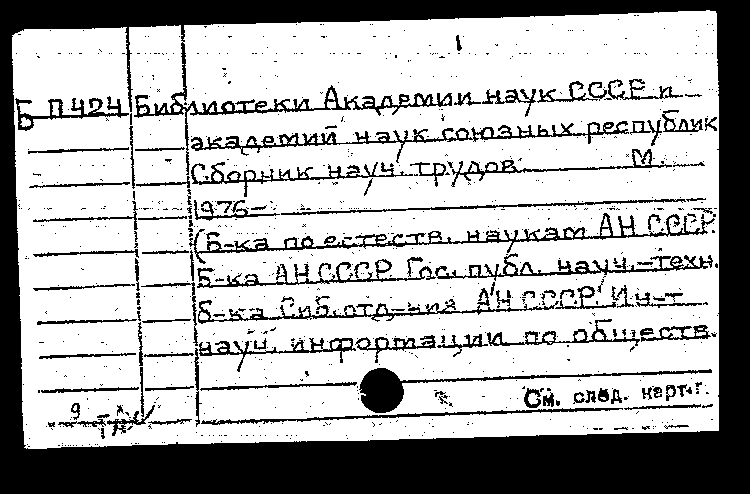 Б П424 Библиотеки Академии наук СССР и
академий наук союзных республик
Сборник науч. трудов. М.
1976-
(Б-ка по естеств. наукам АН СССР.
Б-ка АН СССР. Гос. публ. науч.-техн.
б-ка Сиб. отд-ния АН СССР. Ин-т
науч. информации по обществ.
См. след. карт.
9